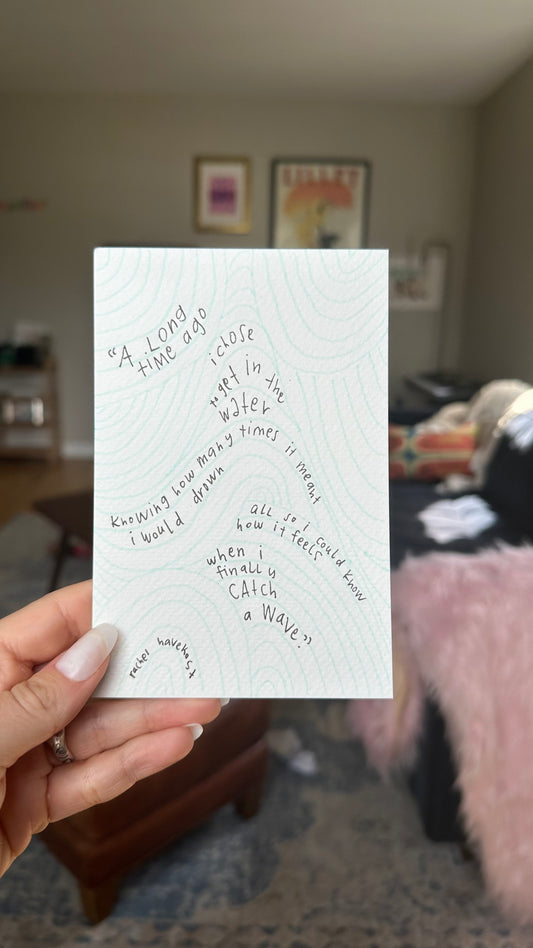 LILLET
"A LONG
TiME ago
i chose
to get in the
water
Knowing how many times it meant
i would drown
all so i could know
how it feels
when i
finally
CAtch
a Wave."
rachel havekost